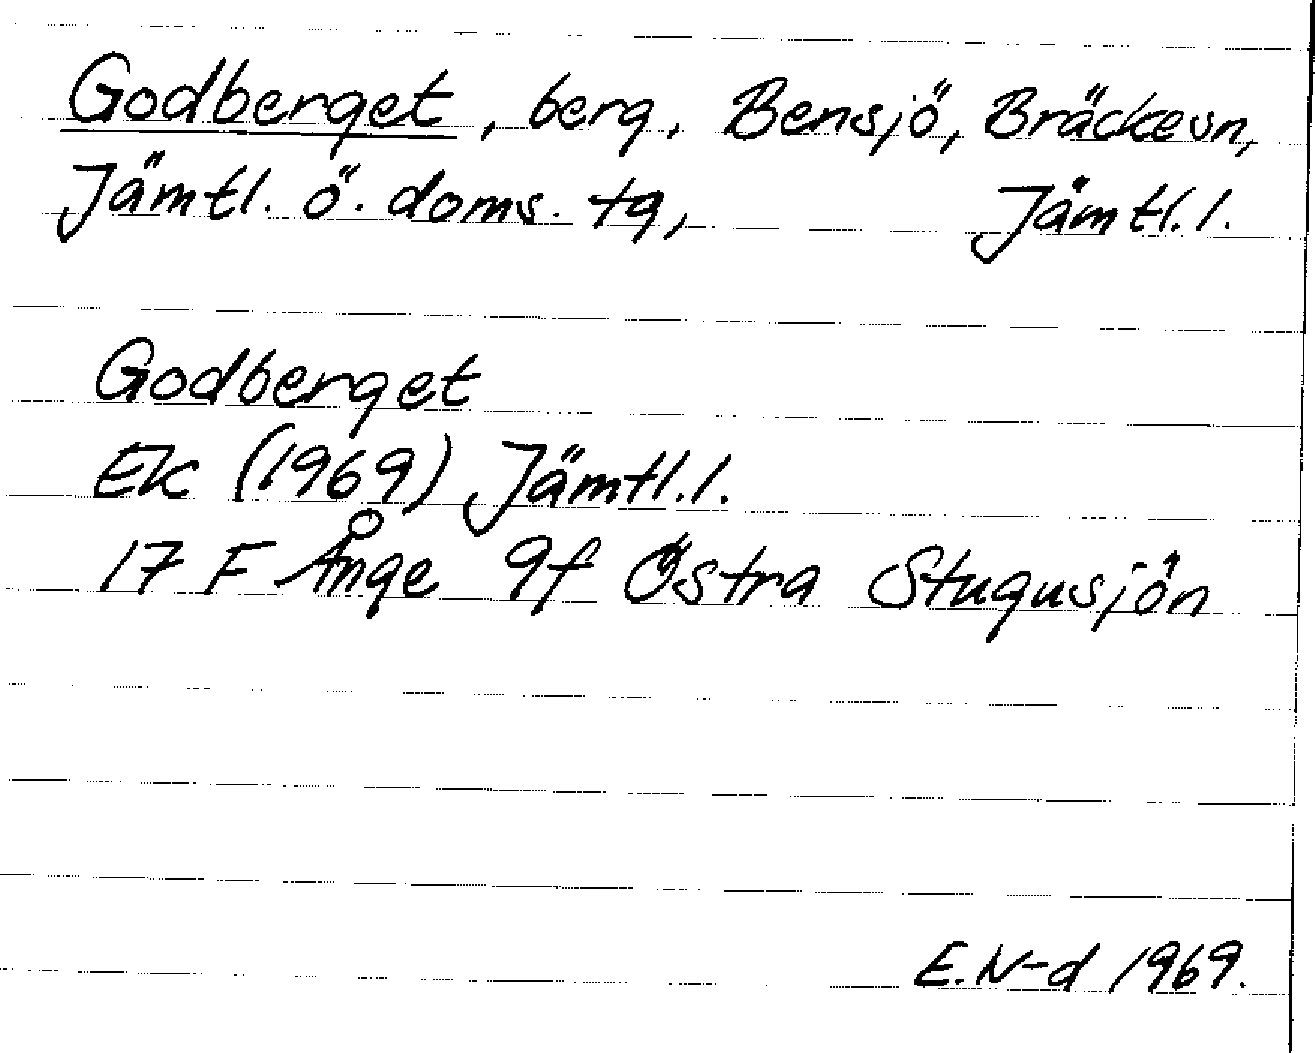 Godberget, berg, Bensjö, Bräcke sn,
Jämtl. ö. doms. tg, Jämtl. l.
Godberget
Ek (1969) Jämtl. l.
17 F Ånge 9f Östra Stugusjön
E. N-d 1969.